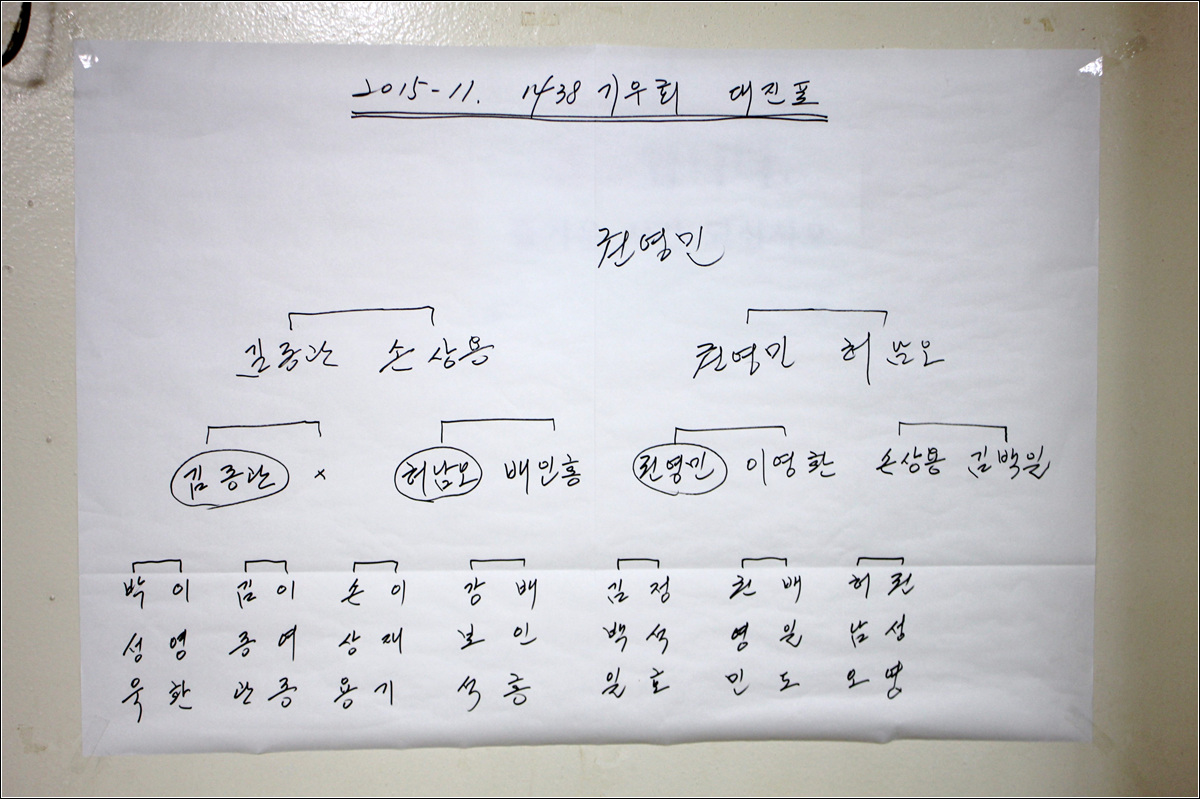 2015-11. 1438 기우회 대진표
권영민
김종관 손상용 권영민 허남오
김종관 × 허남오 배인홍 권영민 이영환 손상용 김백일
박 이 김 이 손 이 강 배 김 정 권 배 허 권
성 영 종 여 상 재 보 인 백 석 영 일 남 성
욱 환 관 종 용 기 석 홍 일 호 민 도 오 영